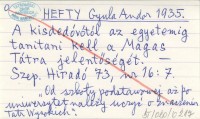 HEFTY Gyula Andor 1935.
A kisdedóvótól az egyetemig
tanítani kell a Magas
Tátra jelentőségét. —
Szep. Hiradó 73, nr 16: 7.
"Od szkoły podstawowej aż po
uniwersytet należy uczyć o znaczeniu
Tatr Wysokich".